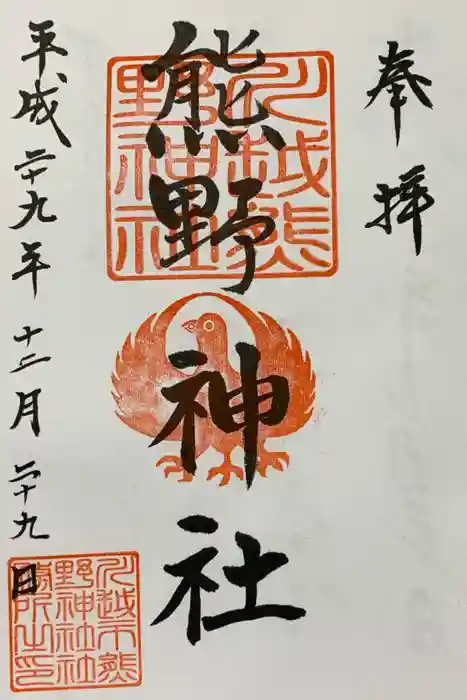 奉拝
熊野神社
川越熊野神社
平成二十九年十二月二十九日
川越市熊野神社社務所之印